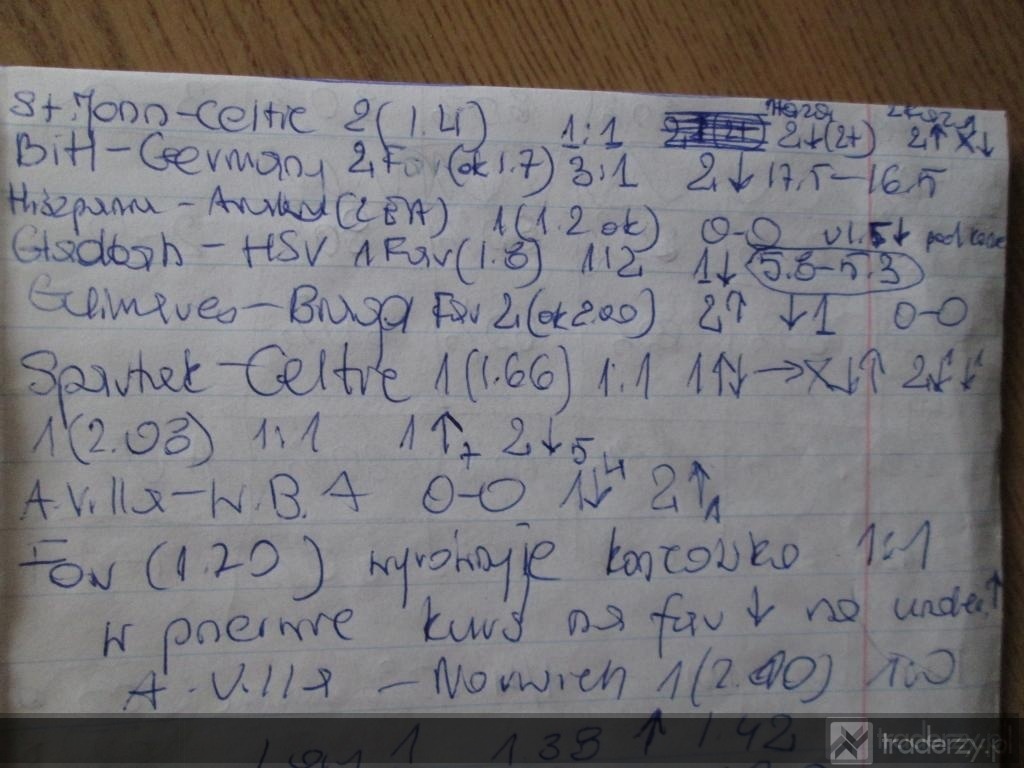 St. Jonn-Celtic 2(1.4) 1:1 2↓(2+) 2↑ X↓
BiH-Germany 2 Fav(ok 1.7) 3:1 2↓ 17.5-16.5
Hiszpania - (1.2 ok) 0-0
Gladbah - HSV 1 Fav(1.8) 1:2 1↓ 5.8-5.3
Guimares-Braga Fav 2(ok 2.00) 2↑ ↓1 0-0
Spartak-Celtic 1(1.66) 1:1 1↑↓→X↓↑ 2↓↓
1(2.03) 1:1 1↑7 2↓5
A.Villa-W.B.A 0-0 1↓4 2↑1
Fav (1.20) wyrównuje końcówka 1:1
w przerwie kurs na fav ↓ na under↑
A.Villa - Norwich 1(2.00) 1:0
1 1 38 ↑ 1.42
traderzy.pl